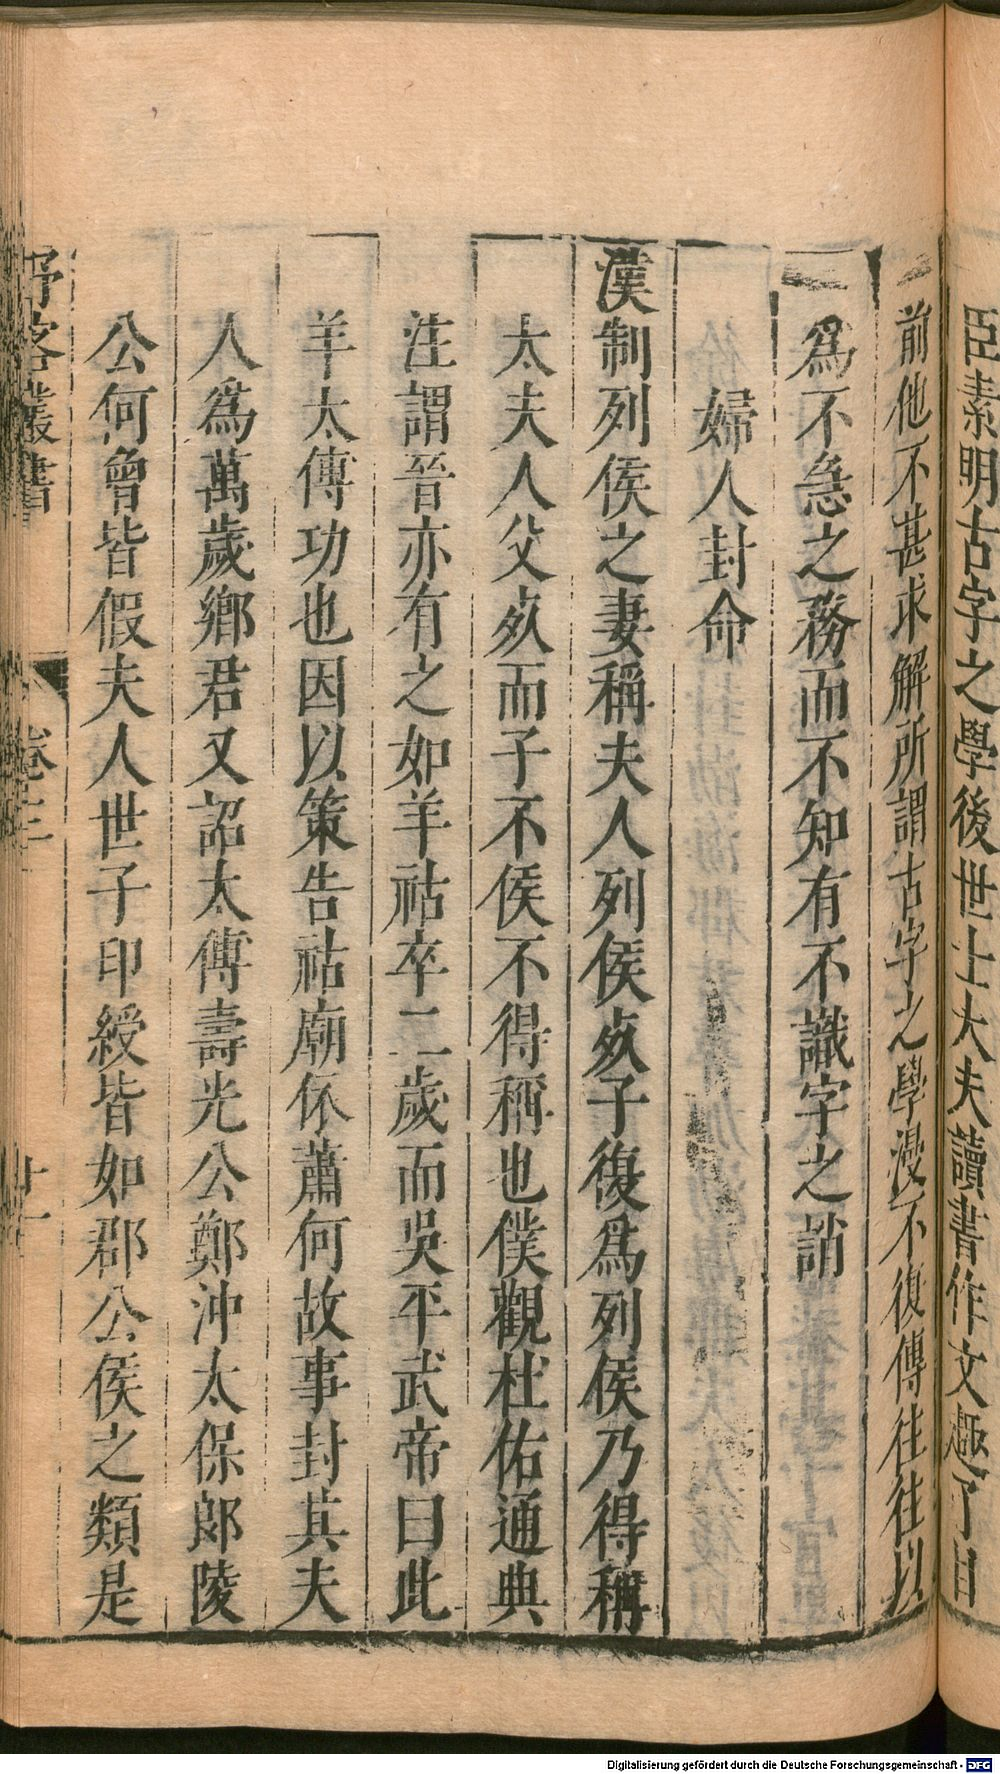 臣素明古字之學後世士大夫讀書作文趣了目
前他不甚求解所謂古字之學漫不復傳往往以
爲不急之務而不知有不識字之誚
婦人封命
漢制列侯之妻稱夫人列侯死子復爲列侯乃得稱
太夫人父死而子不侯不得稱也僕觀杜佑通典
注謂晉亦有之如羊祜卒二歲而吳平武帝曰此
羊太傅功也因以策告祜廟依蕭何故事封其夫
人爲萬歲鄉君又詔太傅壽光公鄭沖太保郎陵
公何曾皆假夫人世子印綬皆如郡公侯之類是
野客叢書
卷三
廿一
Digitalisierung gefördert durch die Deutsche Forschungsgemeinschaft - DFG